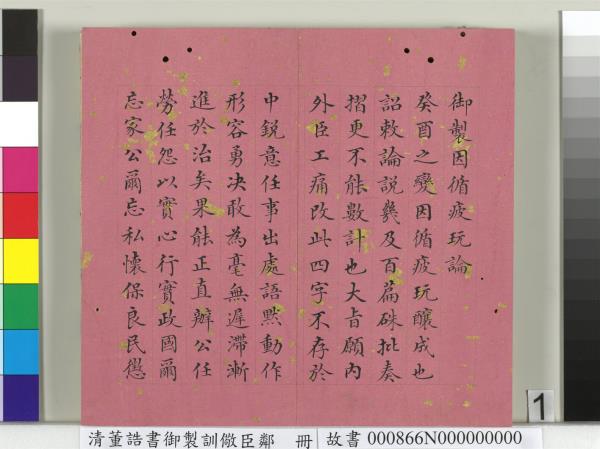 御製因循疲玩論
癸酉之變因循疲玩釀成也
詔敕論說幾及百篇硃批奏
摺更不能數計也大旨願內
外臣工痛改此四字不存於
中銳意任事出處語默動作
形容勇決敢為毫無遲滯漸
進於治矣果能正直辦公任
勞任怨以實心行實政國爾
忘家公爾忘私懷保良民懲
1
清董誥書御製訓儆臣鄰 冊
故書 000866N000000000